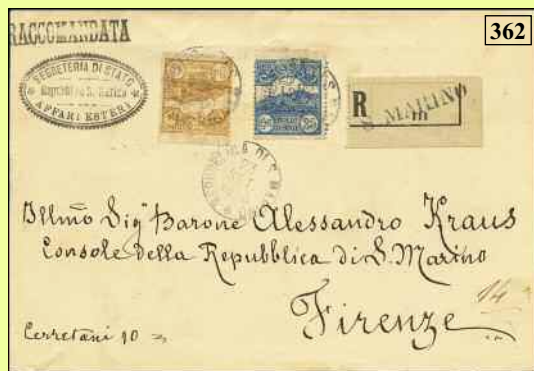 362
RACCOMANDATA
SEGRETERIA DI STATO
AFFARI ESTERI
R
S. MARINO
Illmo Sigr Barone Alessandro Kraus
Console della Repubblica di S. Marino
Firenze
14
Cerretani 10